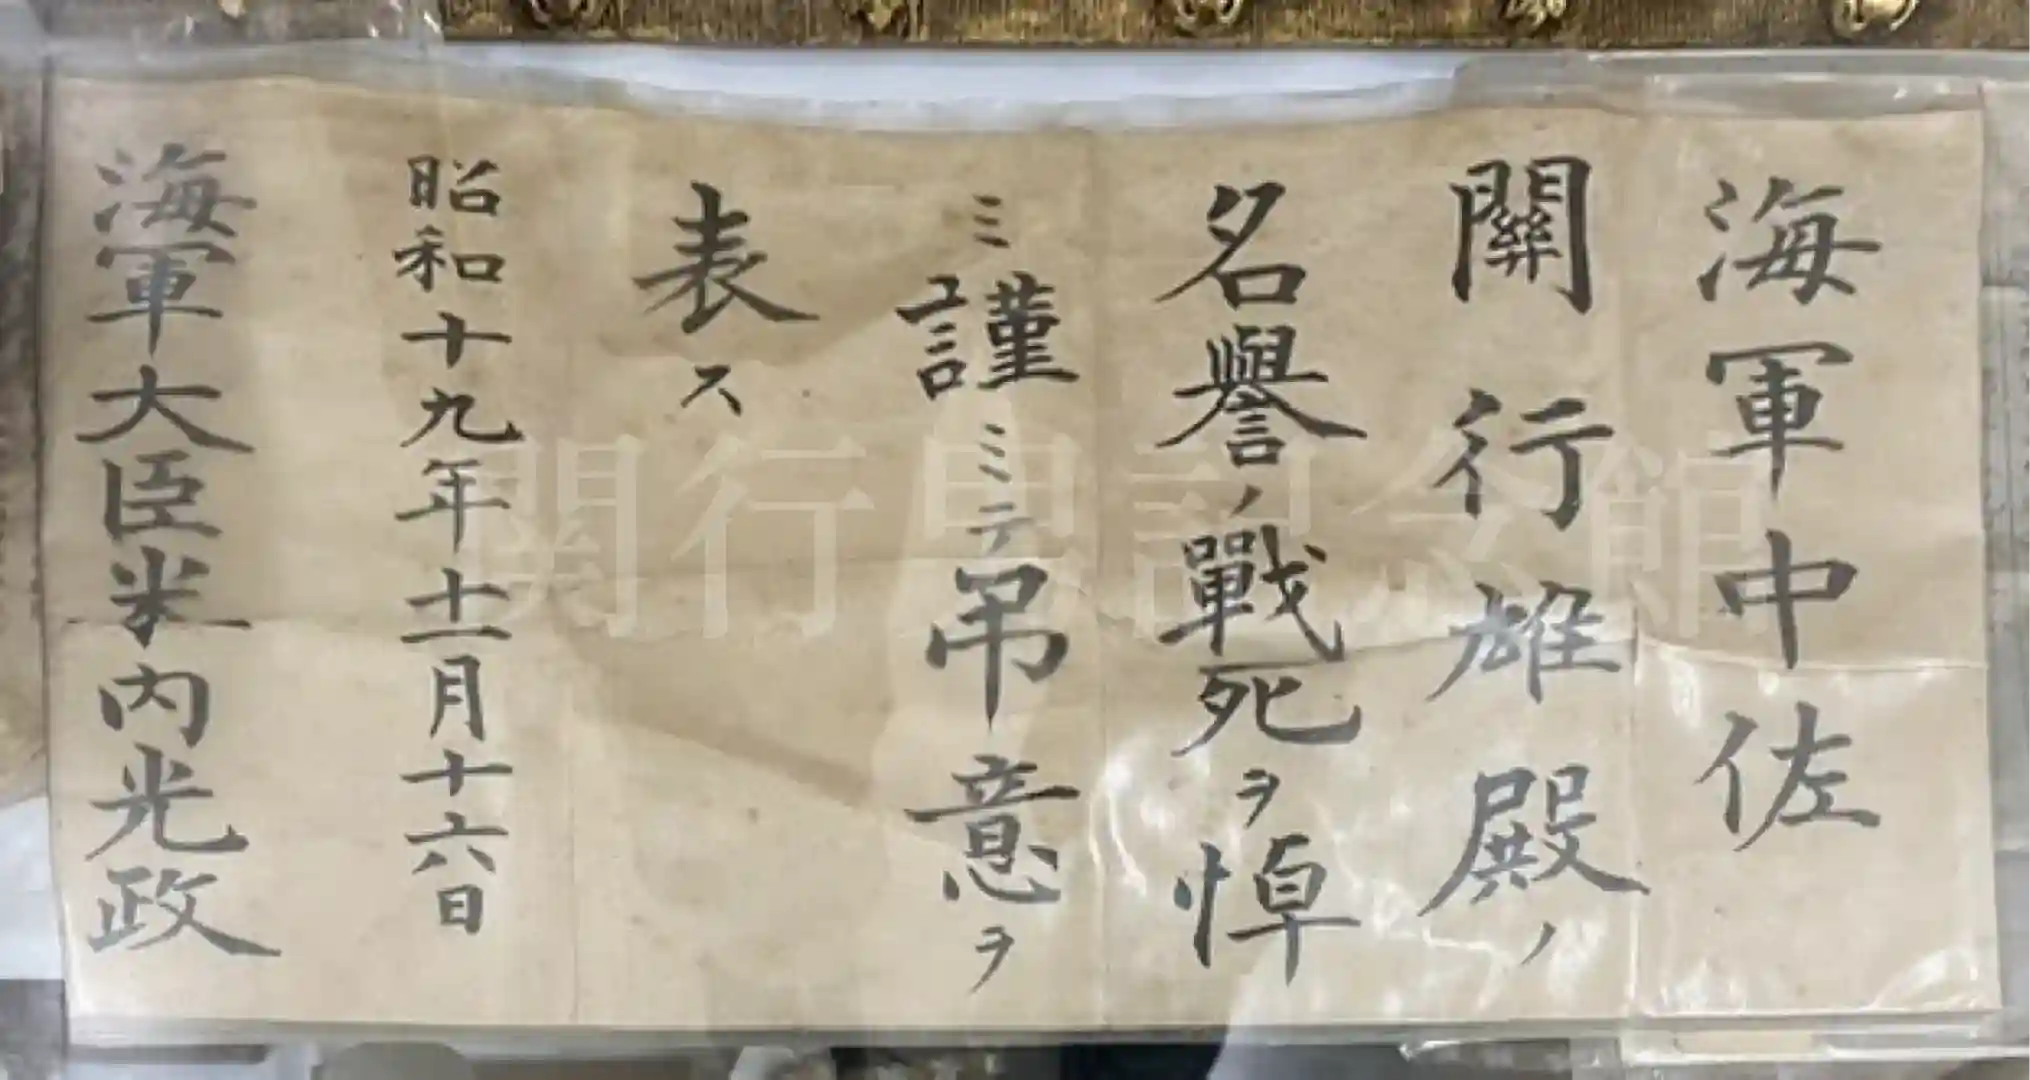 海軍中佐
關行雄殿ノ
名譽ノ戰死ヲ悼
ミ謹ミテ吊意ヲ
表ス
昭和十九年十一月十六日
海軍大臣米内光政
関行男記念館